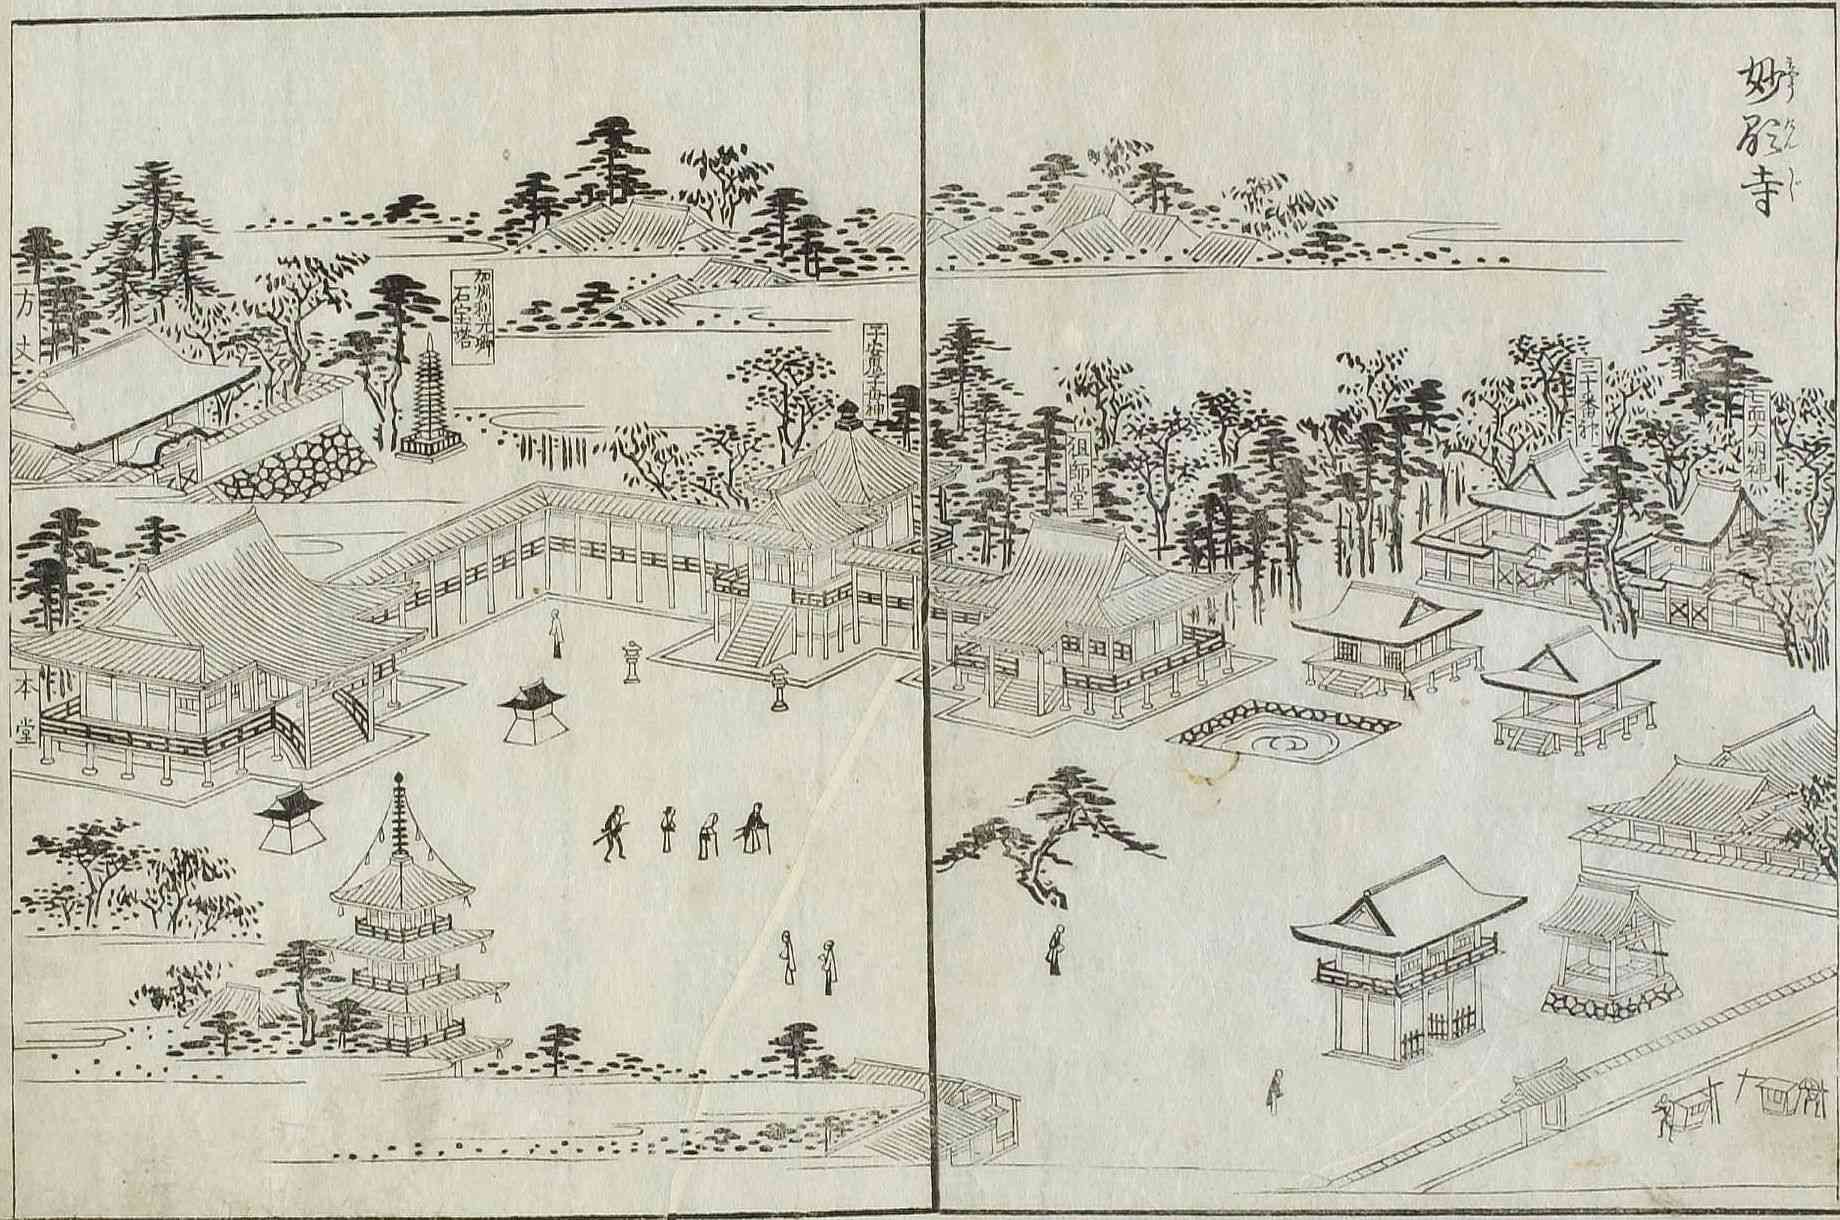 妙顕寺
めうけんじ
七面大明神
三十番神
祖師堂
子安鬼子母神
加州利光卿
石宝塔
方丈
本堂